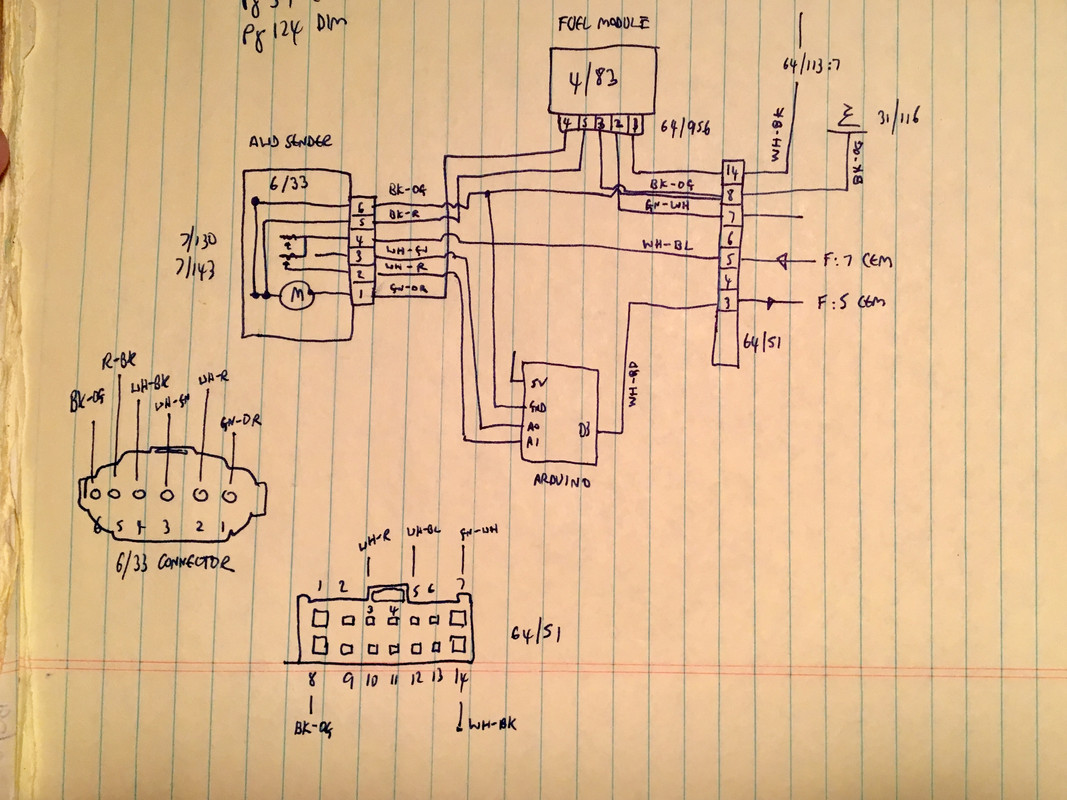 Pg 124 DIM
FUEL MODULE
4/83
4 5 3 2 1
64/956
64/113:7
WH-BK
31/116
BK-OG
AWD SENDER
6/33
7/130
7/143
M
6
5
4
3
2
1
BK-OG
BK-R
WH-GN
WH-R
GN-OR
BK-OG
GN-WH
WH-BL
14
8
7
6
5
4
3
F:7 CEM
F:5 CEM
64/51
WH-RD
5V
GND
A0
A1
D3
ARDUINO
BK-OG
R-BK
WH-BK
WH-GN
WH-R
GN-OR
6 5 4 3 2 1
6/33 CONNECTOR
WH-R
WH-BL
GN-WH
1 2 3 4 5 6 7
64/51
8 9 10 11 12 13 14
BK-OG
WH-BK